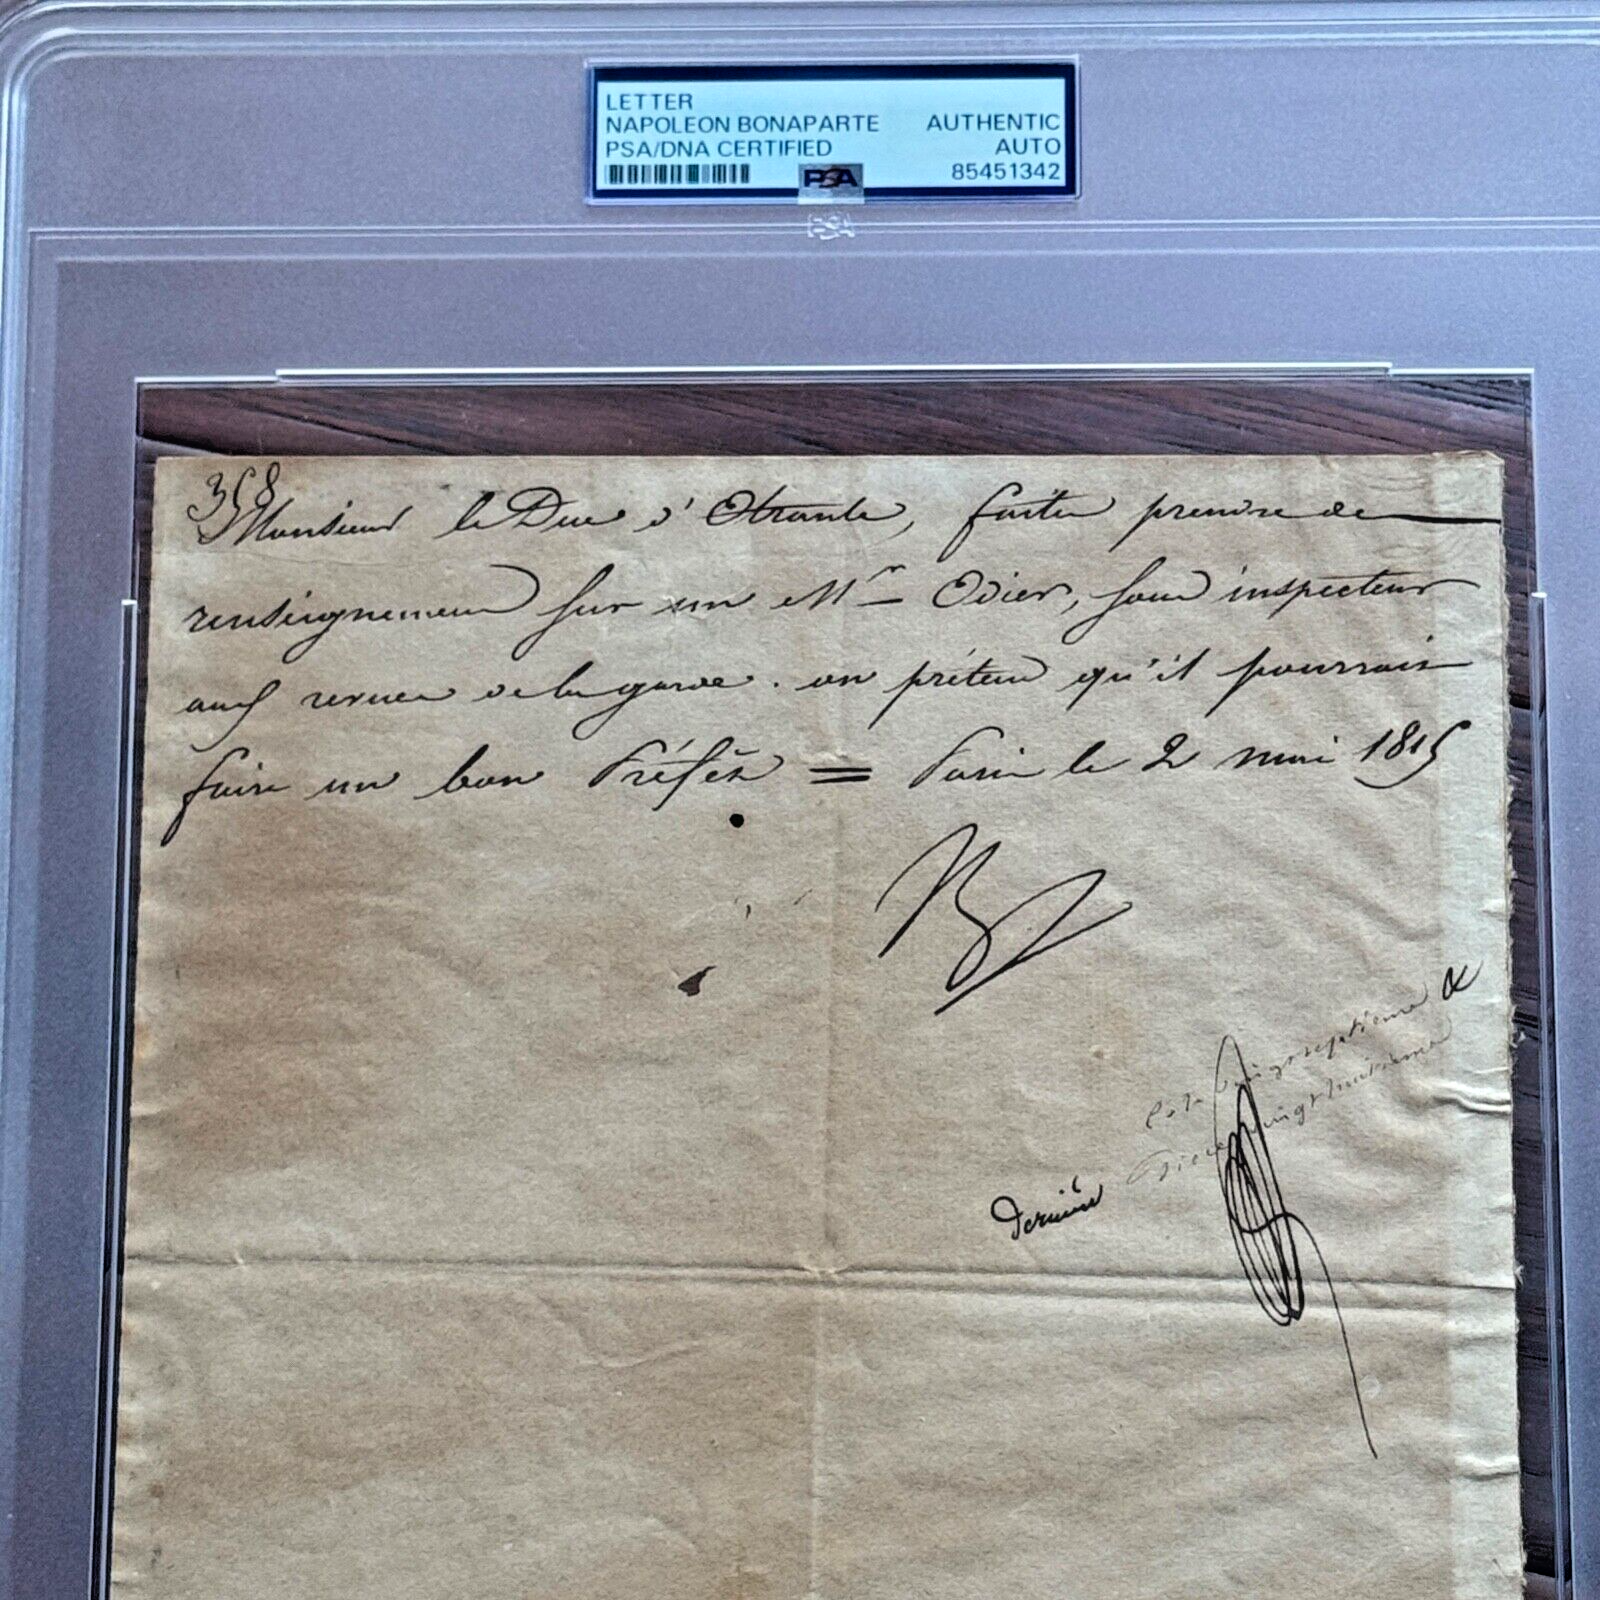 LETTER
NAPOLEON BONAPARTE AUTHENTIC
PSA/DNA CERTIFIED AUTO
PSA 85451342
PSA
358
Monsieur le Duc d'Otrante, faites prendre de
renseignemens sur un Mr Odier, sous inspecteur
aux revues de la garde. on prétend qu'il pourrait
faire un bon Préfet = Paris le 2 mai 1815
vingt huitieme
dernière